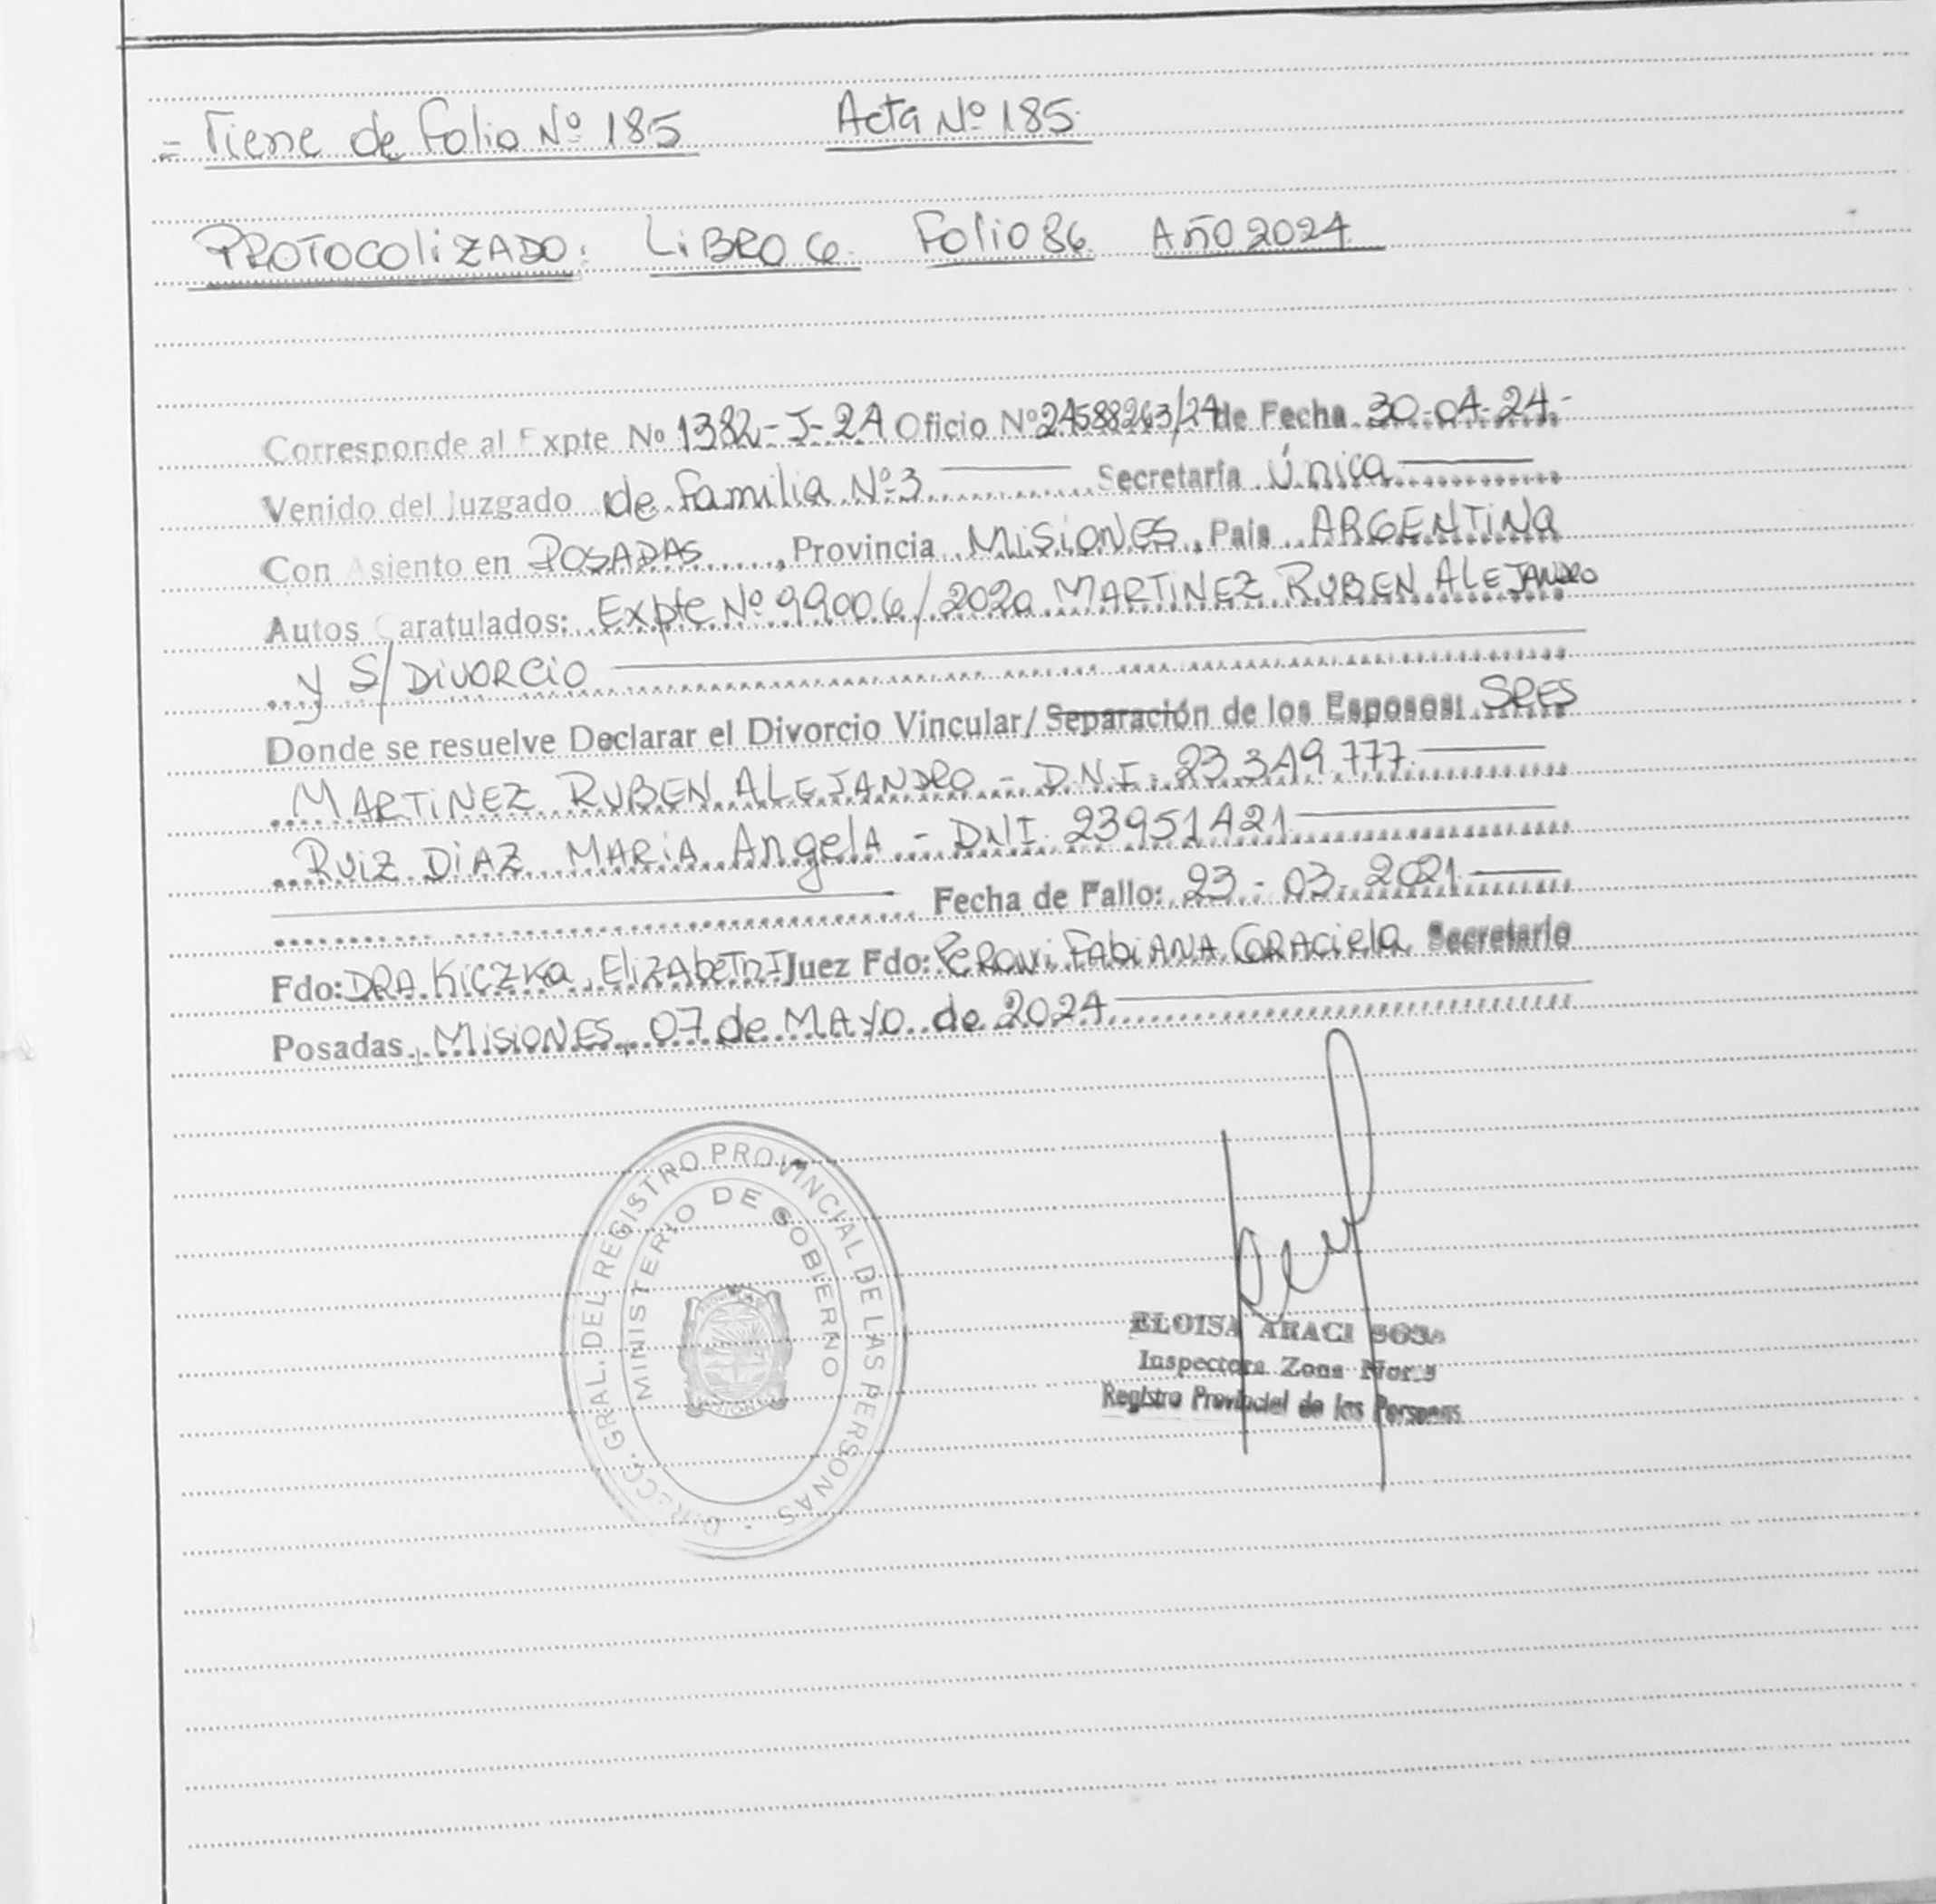 = Tiene de Folio Nº 185 Acta Nº 185.
PROTOCOLIZADO: LIBRO 6. Folio 86. AÑO 2024.
Corresponde al Expte Nº 1382-J-24 Oficio Nº 24588263/24 de Fecha 30-04-24.-
Venido del Juzgado de Familia Nº 3 Secretaría Única
Con Asiento en POSADAS, Provincia MISIONES, País ARGENTINA
Autos Caratulados: Expte Nº 99006/2020 MARTINEZ RUBEN ALEJANDRO
y S/ DIVORCIO
Donde se resuelve Declarar el Divorcio Vincular/Separación de los Esposos: SRES
MARTINEZ RUBEN ALEJANDRO - D.N.I. 23.349.777
RUIZ DIAZ MARIA Angela - DNI. 23951421
Fecha de Fallo: 23-03-2021
Fdo: DRA. Kiczka Juez Fdo: FABIANA GRACIELA Secretario
Posadas, MISIONES, 07 de MAYO de 2024
DIRECC. GRAL. DEL REGISTRO PROVINCIAL DE LAS PERSONAS
MINISTERIO DE GOBIERNO
MISIONES
ELOISA ARACI SOSA
Inspectora Zona Norte
Registro Provincial de las Personas